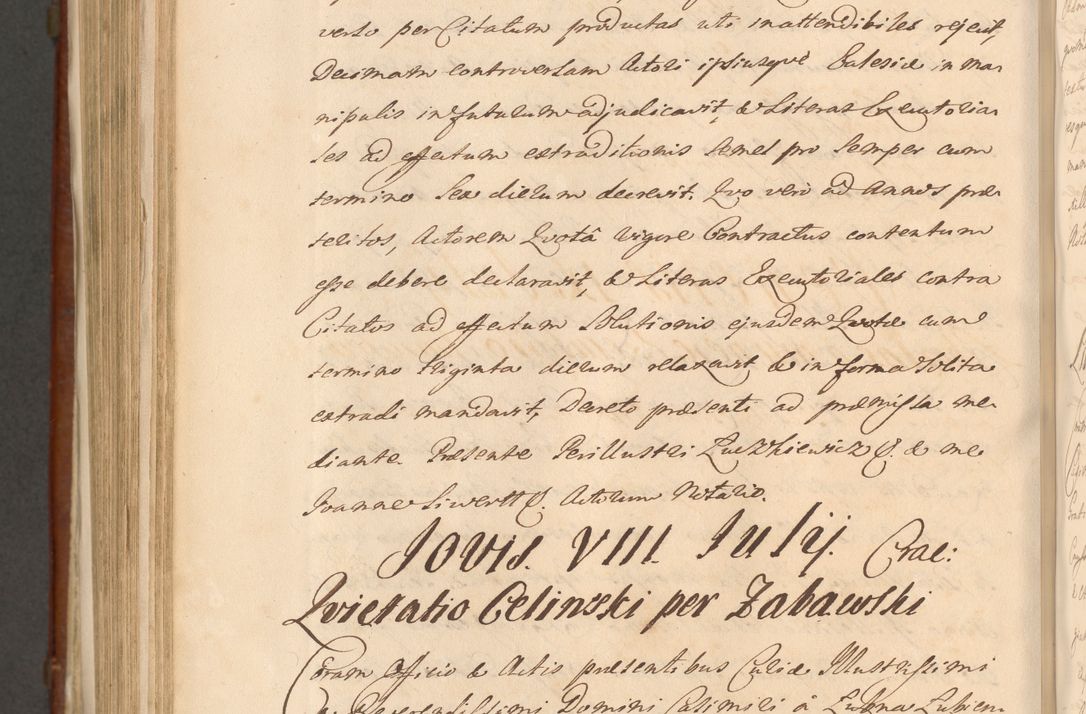 verso per Citatum productas uti inattendibiles rejecit,
Decimam controversam Actori ipsiusque Ecclesiæ in ma-
nipulis in futurum adjudicavit, & Literas Executoria-
les ad effectum extraditionis semel pro semper cum
termino sex dierum decrevit. Quo vero ad Annos præ-
teritos, Actorem Quotâ vigore Contractus contentum
esse debere declaravit, & Literas Executoriales contra
Citatos ad effectum solutionis ejusdem Quotæ cum
termino triginta dierum relaxavit & in forma solita
extradi mandavit, Decreto præsenti ad præmissa me-
diante. Præsente Perillustri Łuczkiewicz & me
Joanne Siwertt Actorum Notario.
Jovis. VIII. Iulij. Crac:
Quietatio Celinski per Zabawski
Coram Officio & Actis præsentibus Curiæ Illustrissimi
Reverendissimi Domini Casimiri à Łubna Łubien